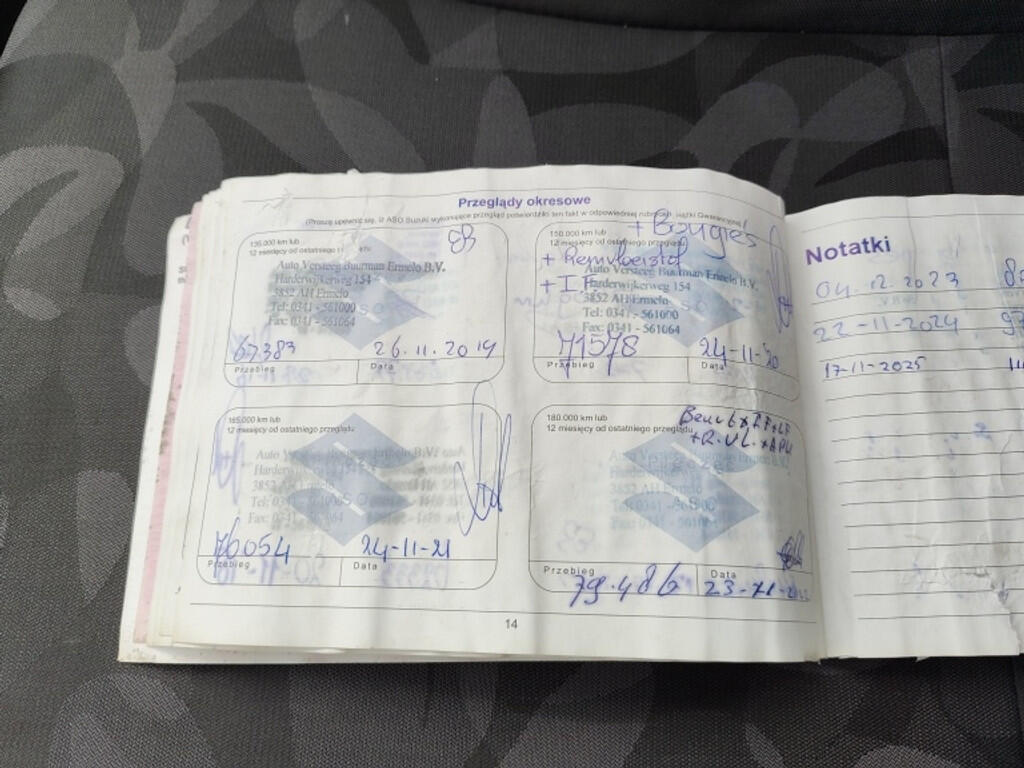 Przeglądy okresowe
(Proszę upewnić się, iż ASO Suzuki wykonujące przegląd potwierdziło ten fakt w odpowiedniej rubryce Książki Gwarancyjnej)
135.000 km lub
12 miesięcy od ostatniego
EB
Auto Versteeg Buurman Ermelo B.V.
Harderwijkerweg 154
3852 AH Ermelo
Tel: 0341 - 561000
Fax: 0341 - 561064
67383 26.11.2019
Przebieg Data
150.000 km lub
12 miesięcy od ostatniego przeglądu
+ Bougies
+ Remvloeistof
+ I F
Auto Versteeg Buurman Ermelo B.V.
Harderwijkerweg 154
3852 AH Ermelo
Tel: 0341 - 561000
Fax: 0341 - 561064
71578 24-11-'20
Przebieg Data
165.000 km lub
12 miesięcy od ostatniego przeglądu
Auto Versteeg Buurman Ermelo B.V.
Harderwijkerweg
3852 AH Ermelo
Tel: 0341
Fax: 0341
76054 24-11-21
Przebieg Data
180.000 km lub
12 miesięcy od ostatniego przeglądu
+ R.VL.+APK
3852 AH Ermelo
Przebieg Data
79.486 23-11-2022
14
Notatki
04.12.2023
22-11-2024 97
17-11-2025